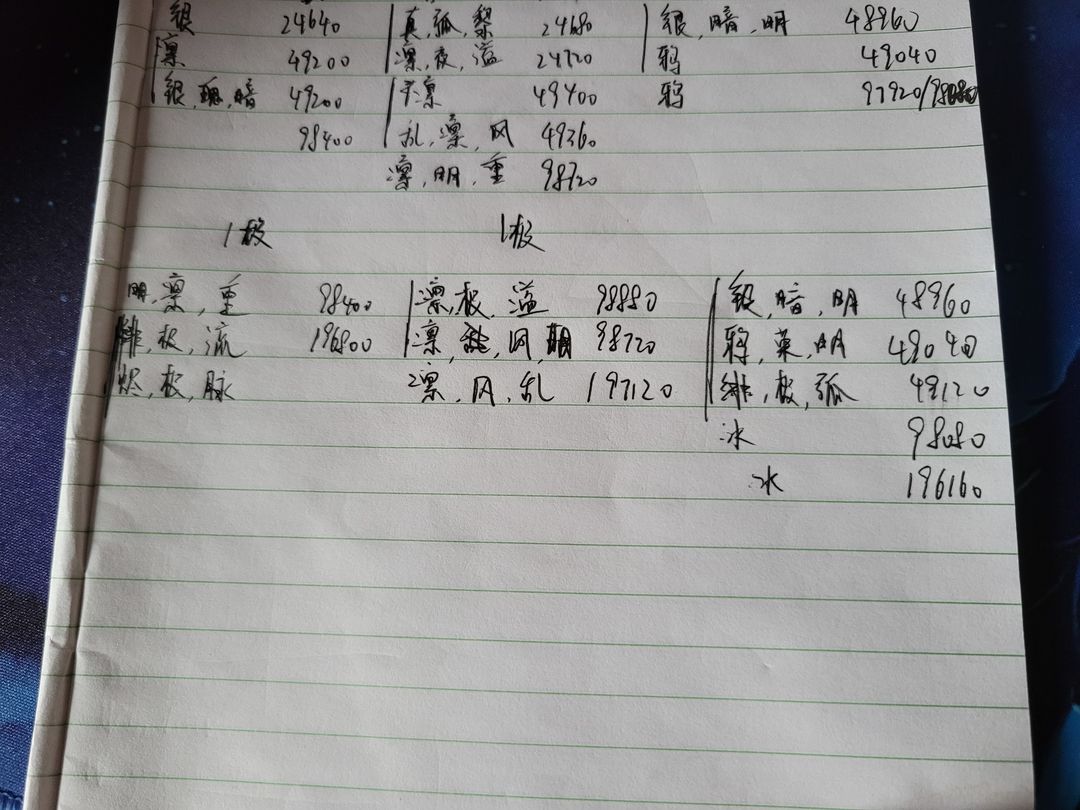 银 24640 真,孤,黎 24680 银,暗,明 48960
凛 49200 凛,夜,溢 24720 鸦 49040
银,瑰,暗 49200 凛 49400 鸦 97920/98080
98400 乱,凛,风 49360
凛,明,重 98720
1极 1极
明,凛,重 98400 凛,极,溢 98880 银,暗,明 48960
绯,极,流 196800 凛,风 98720 鸦,明 49040
烬,极,脉 凛,风,乱 197120 绯,极,孤 49120
冰 98080
冰 196160